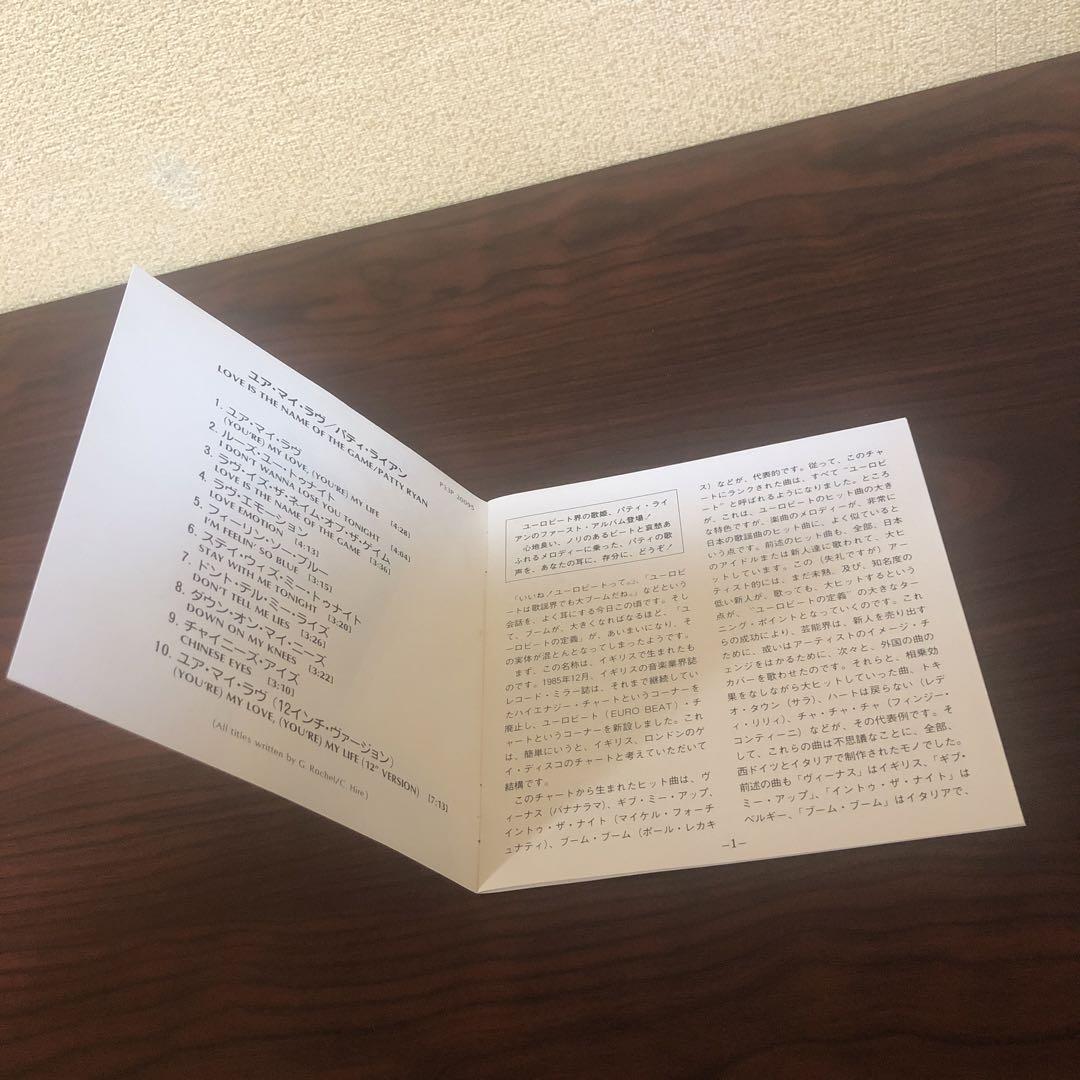 ユア・マイ・ラヴ／パティ・ライアン
LOVE IS THE NAME OF THE GAME/PATTY RYAN
P33P 20095
1. ユア・マイ・ラヴ
(YOU'RE) MY LOVE, (YOU'RE) MY LIFE [4:28]
2. ルーズ・ユー・トゥナイト
I DON'T WANNA LOSE YOU TONIGHT [4:04]
3. ラヴ・イズ・ザ・ネイム・オブ・ザ・ゲイム
LOVE IS THE NAME OF THE GAME [3:36]
4. ラヴ・エモーション
LOVE EMOTION [4:13]
5. フィーリン・ソー・ブルー
I'M FEELIN' SO BLUE [3:15]
6. ステイ・ウィズ・ミー・トゥナイト
STAY WITH ME TONIGHT [3:20]
7. ドント・テル・ミー・ライズ
DON'T TELL ME LIES [3:26]
8. ダウン・オン・マイ・ニーズ
DOWN ON MY KNEES [3:22]
9. チャイニーズ・アイズ
CHINESE EYES [3:10]
10. ユア・マイ・ラヴ（12インチ・ヴァージョン）
(YOU'RE) MY LOVE, (YOU'RE) MY LIFE (12" VERSION) [7:13]
(All titles written by G. Rochel/C. Hire)
ユーロビート界の歌姫、パティ・ライ
アンのファースト・アルバム登場！
心地良い、ノリのあるビートと哀愁あ
ふれるメロディーに乗った、パティの歌
声を、あなたの耳に、存分に、どうぞ！
「いいね！ユーロビートって。」「ユーロビ
ートは歌謡界でも大ブームだね。」などという
会話を、よく耳にする今日この頃です。そし
て、ブームが、大きくなればなるほど、「ユ
ーロビートの定義」が、あいまいになり、そ
の実体が混とんとなってしまったようです。
まず、この名称は、イギリスで生まれたも
のです。1985年12月、イギリスの音楽業界誌
レコード・ミラー誌は、それまで継続してい
たハイエナジー・チャートというコーナーを
廃止し、ユーロビート（EURO BEAT）・チ
ャートというコーナーを新設しました。これ
は、簡単にいうと、イギリス、ロンドンのゲ
イ・ディスコのチャートと考えていただいて
結構です。
このチャートから生まれたヒット曲は、ヴ
ィーナス（バナナラマ）、ギブ・ミー・アップ、
イントゥ・ザ・ナイト（マイケル・フォーチ
ュナティ）、ブーム・ブーム（ポール・レカキ
ス）などが、代表的です。従って、このチャ
ートにランクされた曲は、すべて"ユーロビ
ート"と呼ばれるようになりました。ところ
が、これは、ユーロビートのヒット曲の大き
な特色ですが、楽曲のメロディーが、非常に
日本の歌謡曲のヒット曲に、よく似ていると
いう点です。前述のヒット曲も、全部、日本
のアイドルまたは新人達に歌われて、大ヒ
ットしています。この（失礼ですが）アー
ティスト的には、まだ未熟、及び、知名度の
低い新人が、歌っても、大ヒットするという
点が、"ユーロビートの定義"の大きなター
ニング・ポイントとなっていくのです。これ
らの成功により、芸能界は、新人を売り出す
ために、或いはアーティストのイメージ・チ
ェンジをはかるために、次々と、外国の曲の
カバーを歌わせたのです。それらと、相乗効
果をなしながら大ヒットしていった曲、トキ
オ・タウン（サラ）、ハートは戻らない（レデ
ィ・リリィ）、チャ・チャ・チャ（フィンジー・
コンティーニ）などが、その代表例です。そ
して、これらの曲は不思議なことに、全部、
西ドイツとイタリアで制作されたモノでした。
前述の曲も「ヴィーナス」はイギリス、「ギブ・
ミー・アップ」、「イントゥ・ザ・ナイト」は
ベルギー、「ブーム・ブーム」はイタリアで、
–1–